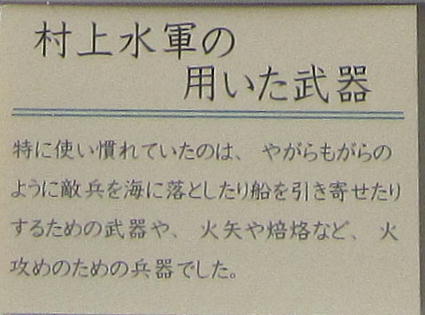 村上水軍の
用いた武器
特に使い慣れていたのは、やがらもがらの
ように敵兵を海に落としたり船を引き寄せたり
するための武器や、火矢や焙烙など、火
攻めのための兵器でした。